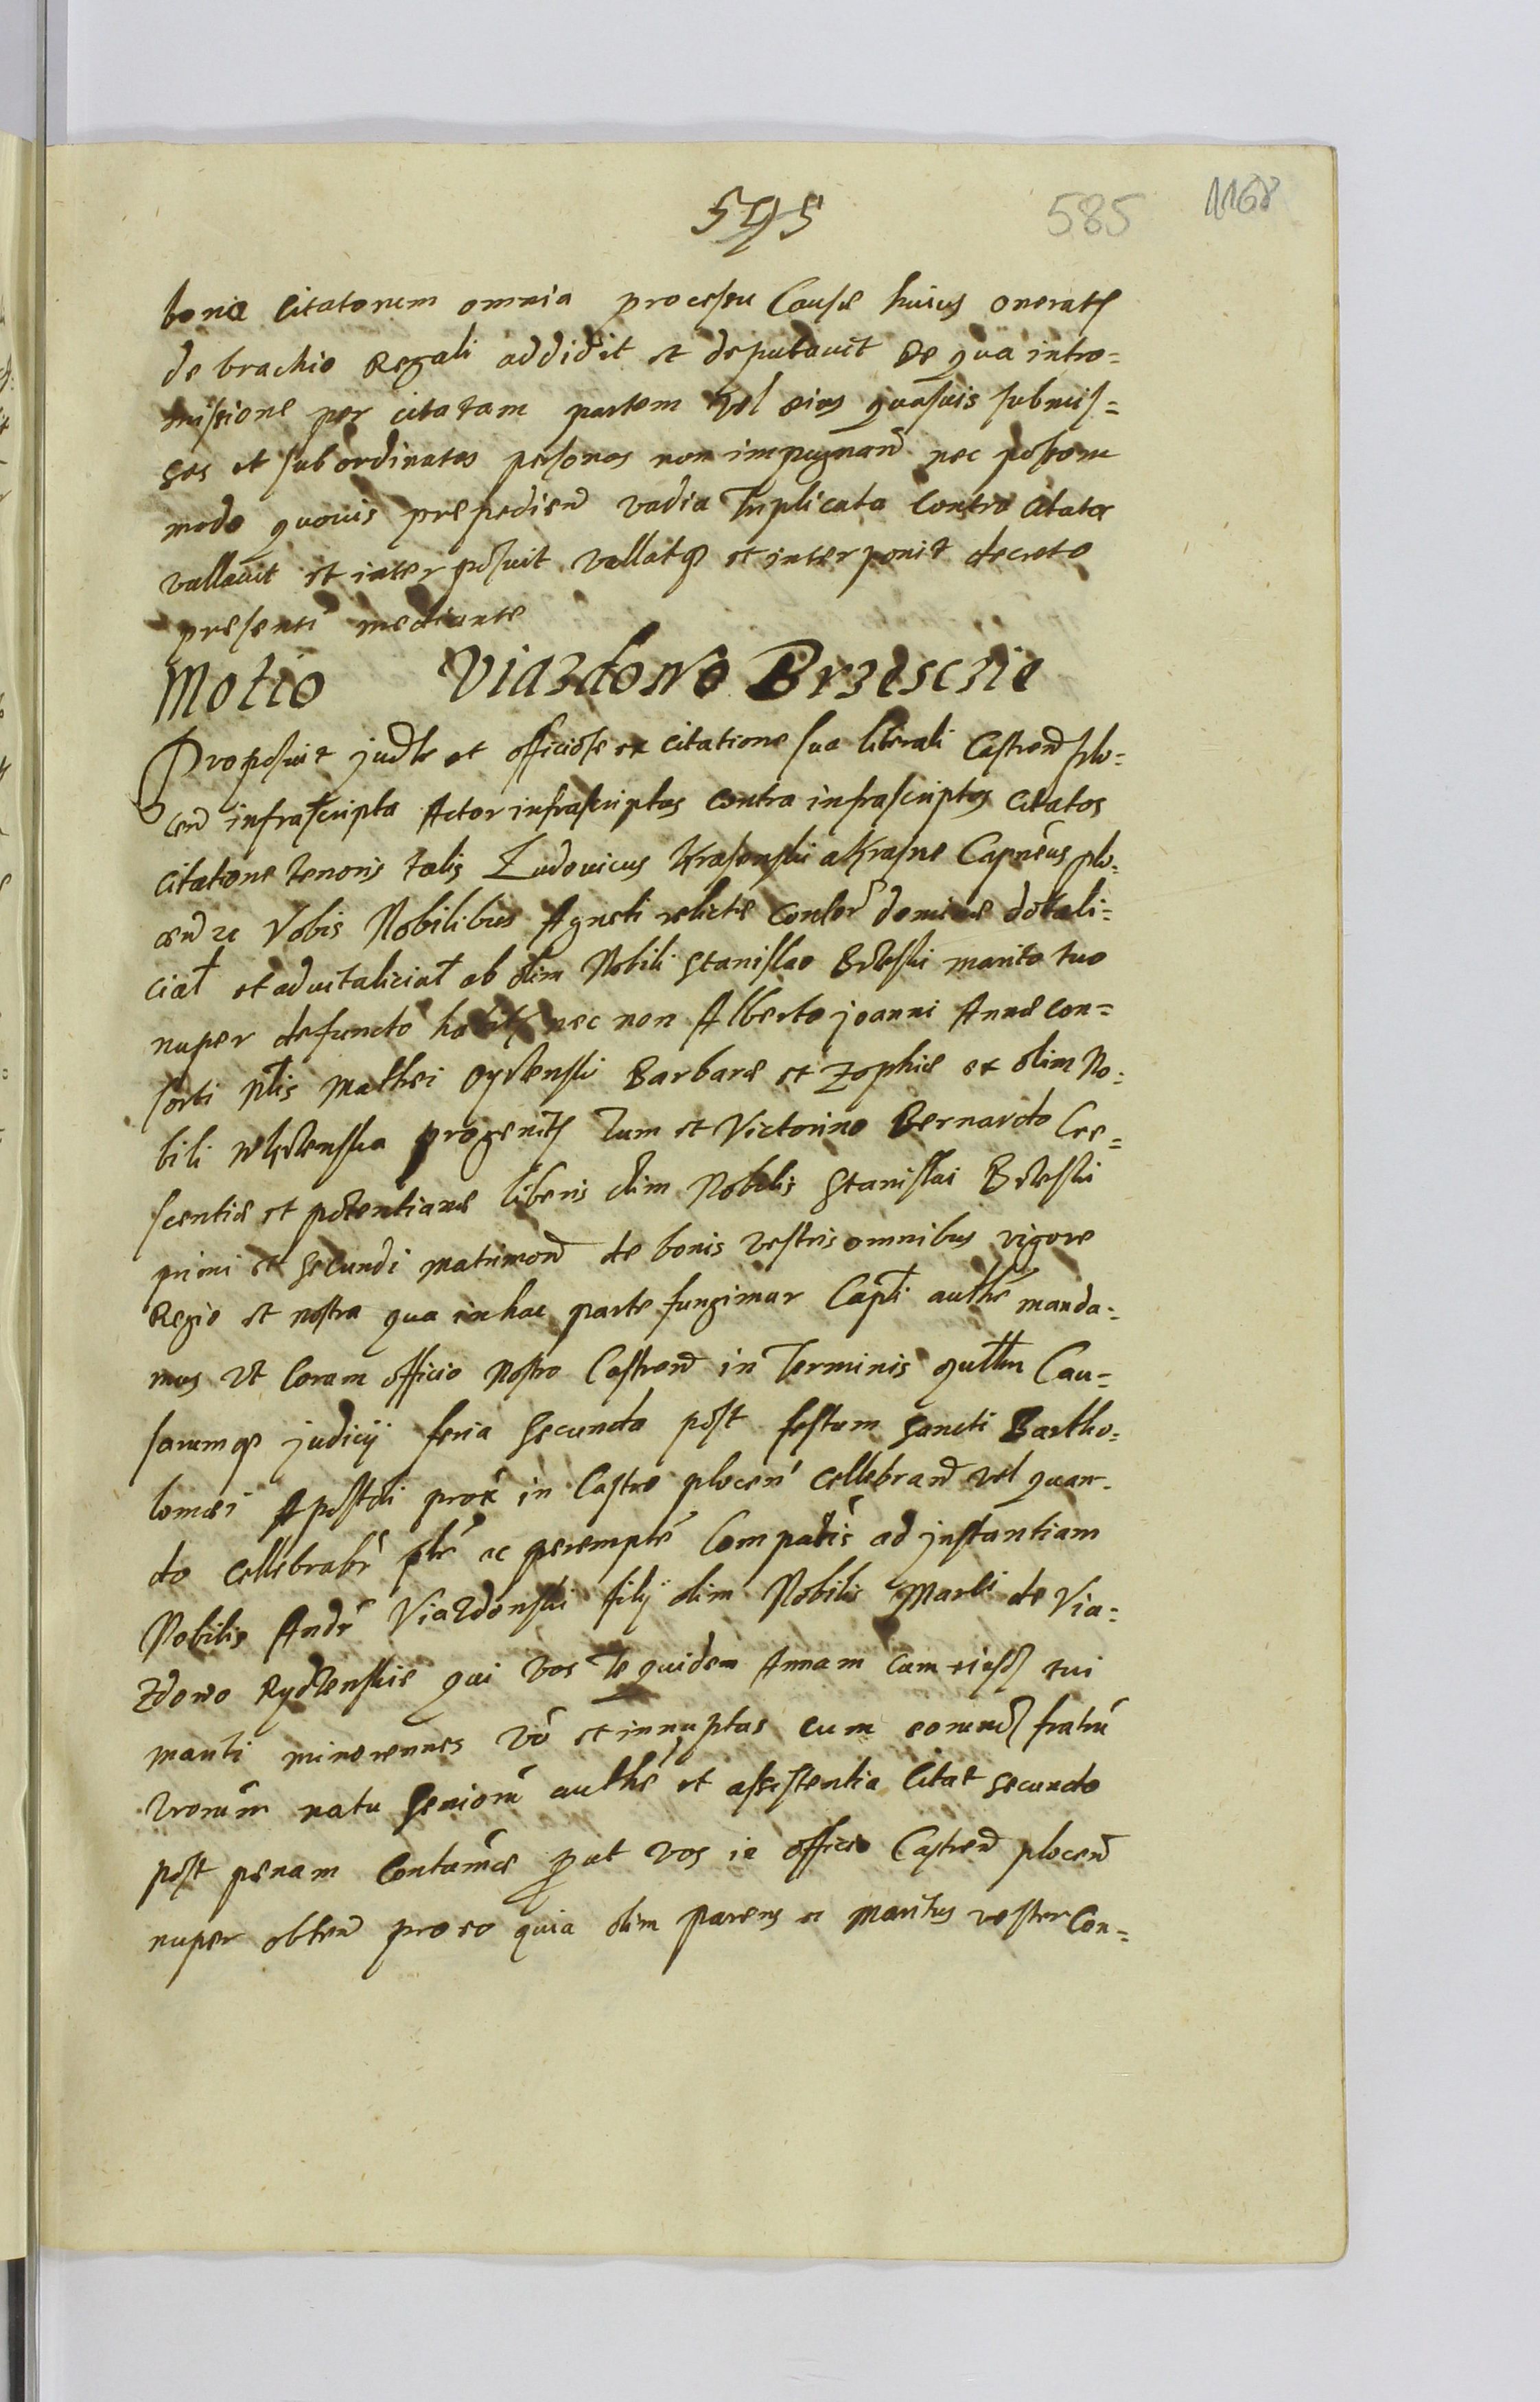 595 585 1168
bona Citatorum omnia processu Causæ huius onerats
de brachio Regali addidit et deputauit De qua intro=
missione per citatam partem vel eius quasuis submis=
ses et subordinatas personas non impugnand nec
modo quouis præpediend vadia Triplicata Contra Citatos
vallauit et interposuit vallatq et interponit decreto
præsenti mediante
Motio Viazdowo Brzesczie
Proposuit judle et officiose ex citatione sua literali Castren plo=
cen infrascripta Actor infrascriptus contra infrascriptos Citatos
citatione tenoris talis Ludouicus Krasenski a Krasne Capneus plo=
cen etc Vobis Nobilibus Agneti relictæ dominæ dotali=
ciat et aduitaliciat ab olim Nobili Stanislao marito tuo
nuper defuncto nec non Alberto joanni Annæ con=
sorti Nlis Mathei Barbaræ et Zophiæ ex olim No=
bili progenits Tum et Victorino Bernardo Cre=
scentiæ et potentianæ liberis olim Nobilis Stanislai
primi et secundi matrimon de bonis vestris omnibus vigore
Regio et nostra qua in hac parte fungimur Capli authe manda=
mus Vt Coram officio Nostro Castren in Terminis Cau=
sarumq judicij feria Secunda post festum Sancti Bartho=
lomæi Apostoli prox in Castro plocen cellebrand vel quan=
do cellebrabr ac perempte Compatis ad jnstantiam
Nobilis Andr Viazdonski filij olim Nobilis de Via=
zdowo Rydzenskie qui vos Te quidem Annam cum tui
mariti minorennes vo et innuptas cum eorund fratru
vrorum natu Seniorum authe et assistentia Citat secundo
post penam Contumace put vos in officio Castren plocen
nuper obten pro eo quia olim Parens et Maritus vester Con=